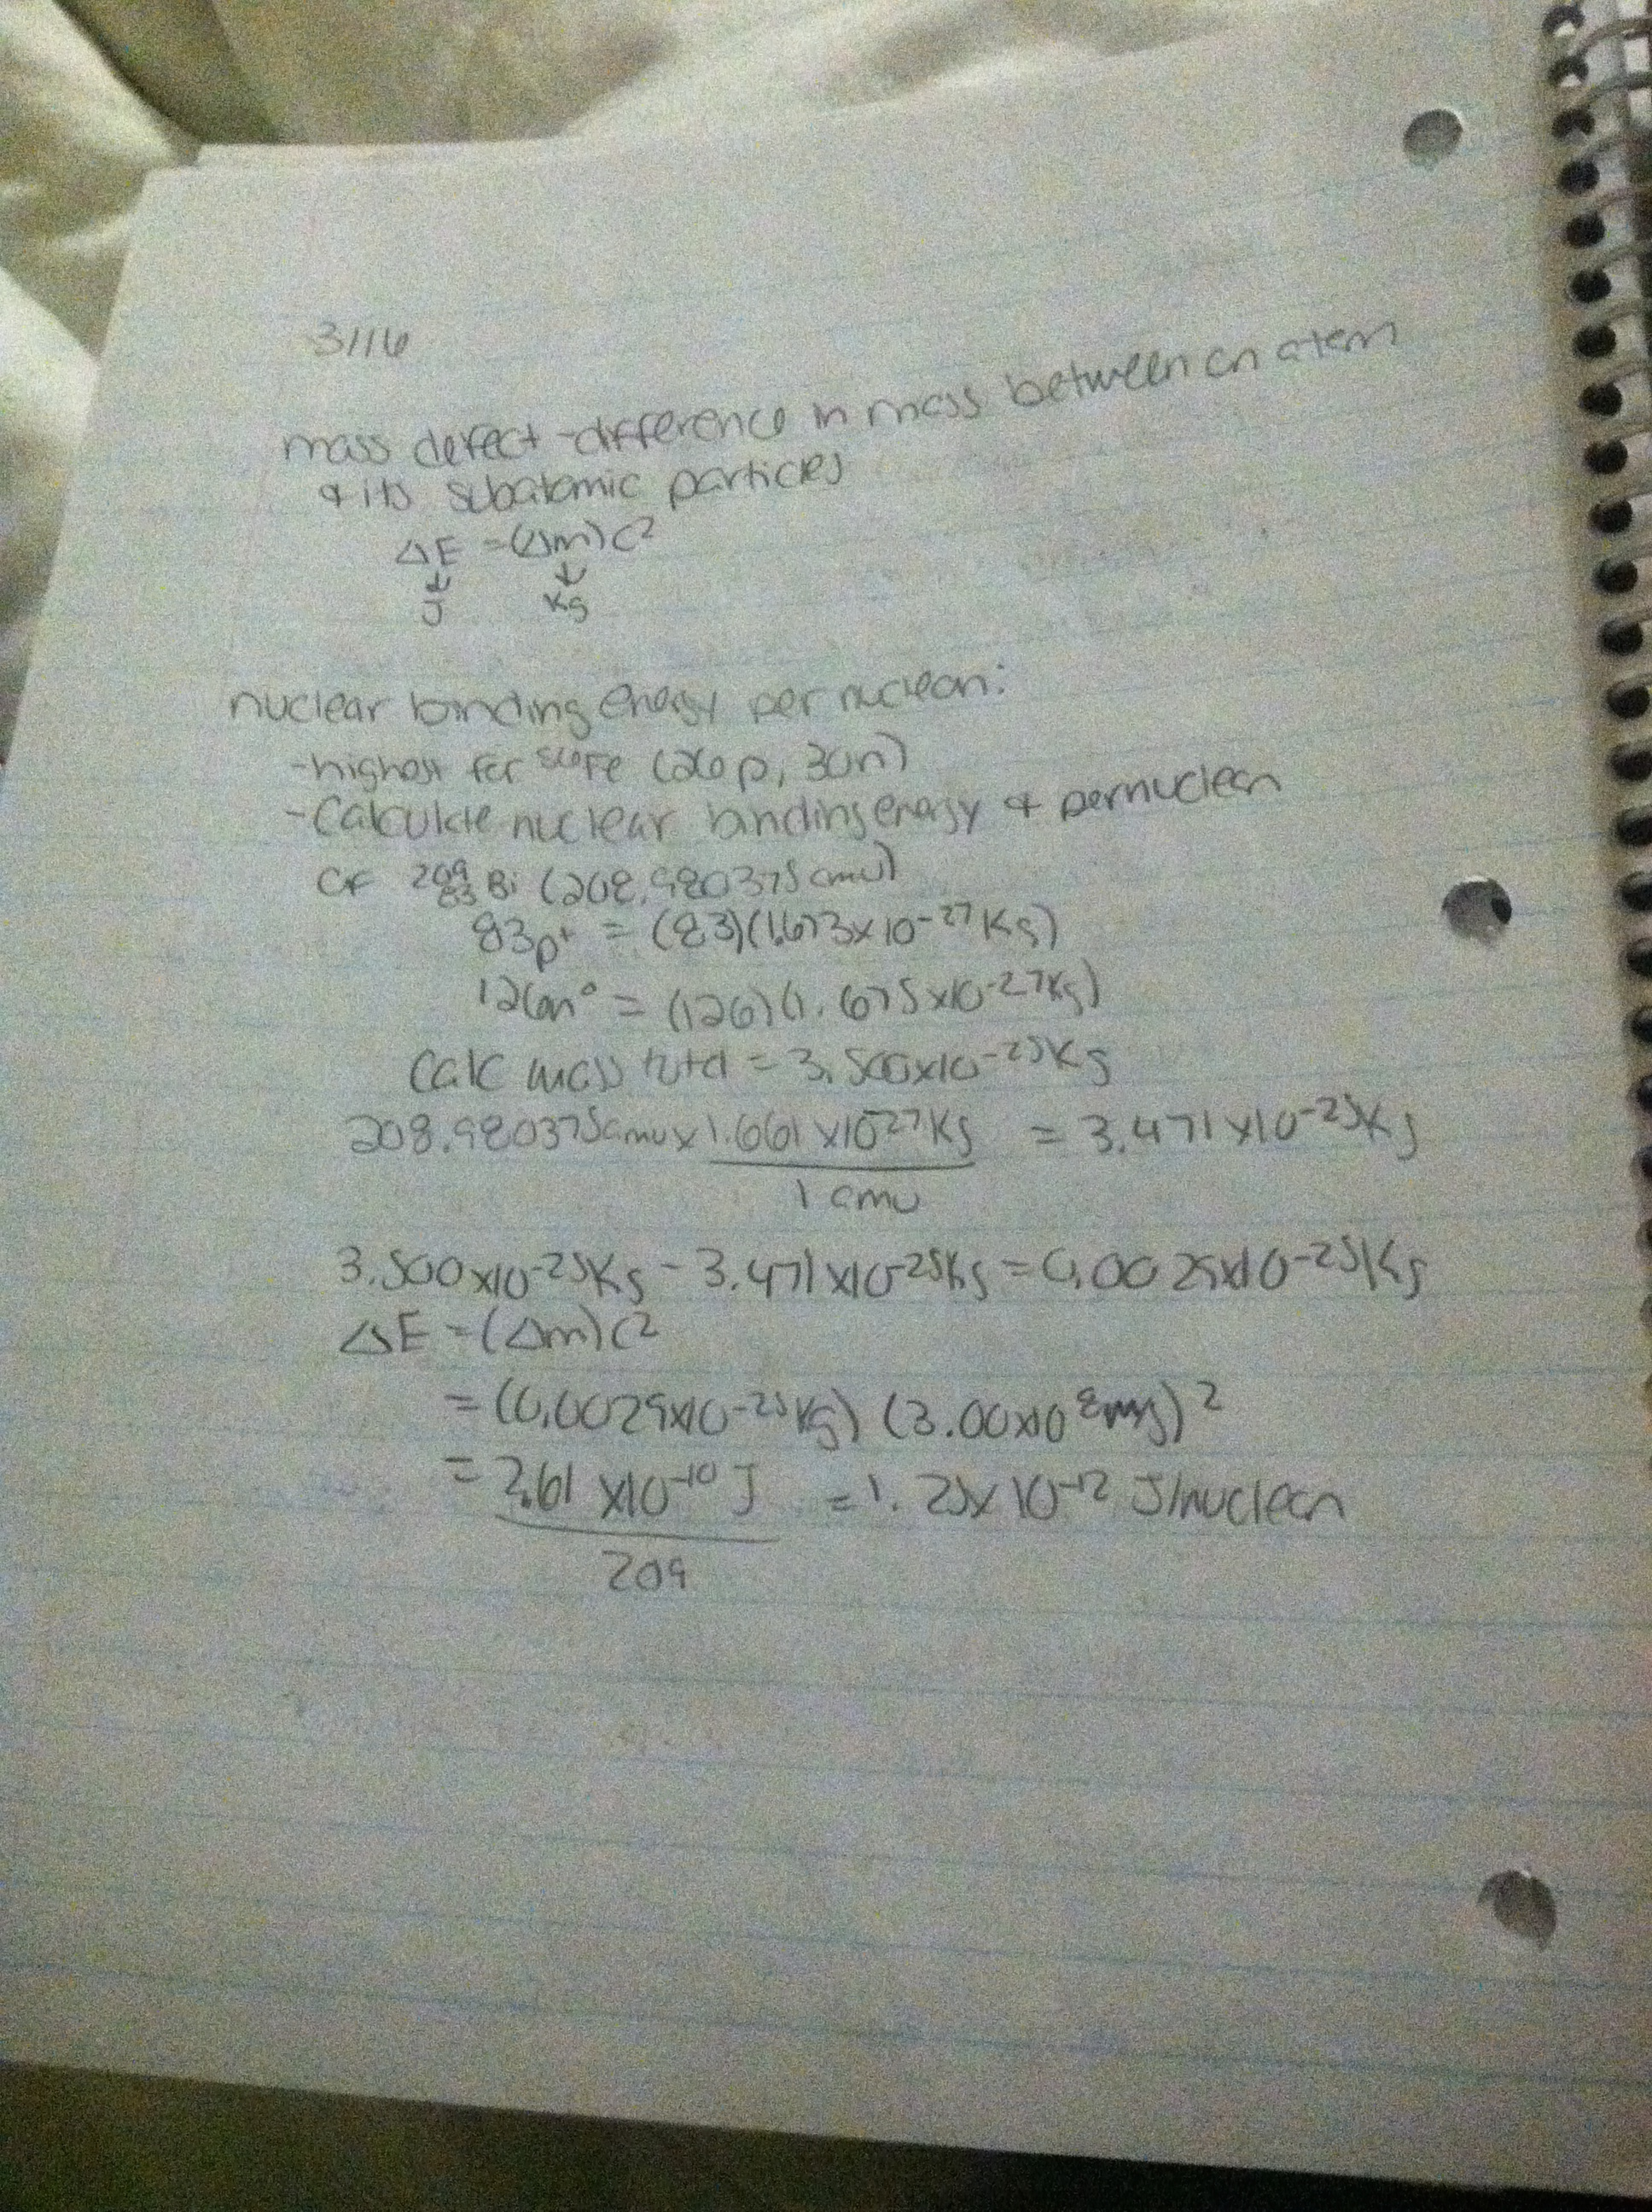 3/16
mass defect - difference in mass between an atom
& its subatomic particles
ΔE = (Δm)c²
↓ ↓
J Kg
nuclear binding energy per nucleon:
- highest for ⁵⁶Fe (26p, 30n)
- Calculate nuclear binding energy & per nucleon
of ²⁰⁹₈₃Bi (208.980375 amu)
83p⁺ = (83)(1.673x10⁻²⁷Kg)
126n° = (126)(1.675x10⁻²⁷Kg)
Calc mass total = 3.500x10⁻²⁵Kg
208.980375amu x 1.661 x10⁻²⁷Kg = 3.471 x10⁻²⁵Kg
1 amu
3.500x10⁻²⁵Kg - 3.471x10⁻²⁵Kg = 0.0029x10⁻²⁵Kg
ΔE = (Δm)c²
= (0.0029x10⁻²⁵Kg) (3.00x10⁸m/s)²
= 2.61 x10⁻¹⁰ J = 1.25x10⁻¹² J/nucleon
209